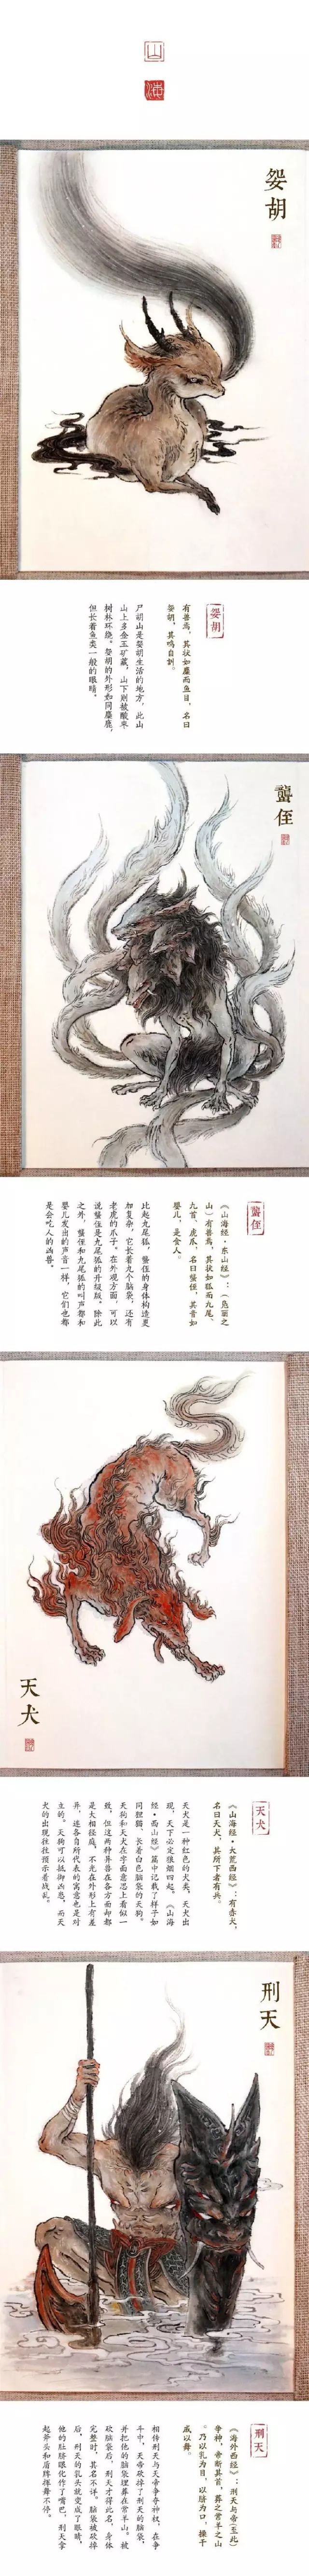 山
海
妴胡
妴胡
有兽焉，其状如麋而鱼目，名曰
妴胡，其鸣自訆。
尸胡山是妴胡生活的地方，此山
山上多金玉矿藏，山下则被酸枣
树林环绕。妴胡的外形如同麋鹿，
但长着鱼类一般的眼睛。
蠪侄
蠪侄
《山海经·东山经》：（凫丽之
山）有兽焉，其状如狐而九尾、
九首、虎爪，名曰蠪侄，其音如
婴儿，是食人。
比起九尾狐，蠪侄的身体构造更
加复杂，它长着九个脑袋，还有
老虎的爪子。在外观方面，可以
说蠪侄是九尾狐的升级版。除此
之外，蠪侄和九尾狐的叫声都和
婴儿发出的声音一样，它们也都
是会吃人的凶兽。
天犬
天犬
《山海经·大荒西经》：有赤犬，
名曰天犬，其所下者有兵。
天犬是一种红色的犬类，天犬出
现，天下必定狼烟四起。《山海
经·西山经》篇中记载了样子如
同狸猫、长着白色脑袋的天狗。
天狗和天犬在字面意思上看似一
致，但这两种异兽在各方面却都
是大相径庭，不光在外形上有差
异，连各自所代表的寓意也是对
立的。天狗可以抵御凶恶，而天
犬的出现往往预示着战乱。
刑天
刑天
《海外西经》：刑天与帝（至此）
争神，帝断其首，葬之常羊之山
。乃以乳为目，以脐为口，操干
戚以舞。
相传刑天与天帝争夺神权，在争
斗中，天帝砍掉了刑天的脑袋，
并把他的脑袋埋葬在常羊山。被
砍脑袋后，刑天才得此名，身体
完整时，其名不详。脑袋被砍掉
后，刑天的乳头就变成了眼睛，
他的肚脐眼化作了嘴巴，刑天拿
起斧头和盾牌挥舞不停。